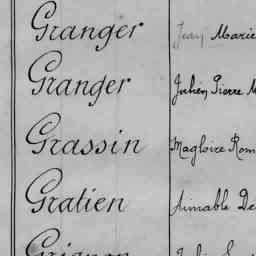 Granger Jean Marie
Granger Julien Pierre M
Grassin Magloire Rom
Gratien Aimable De
Grignon